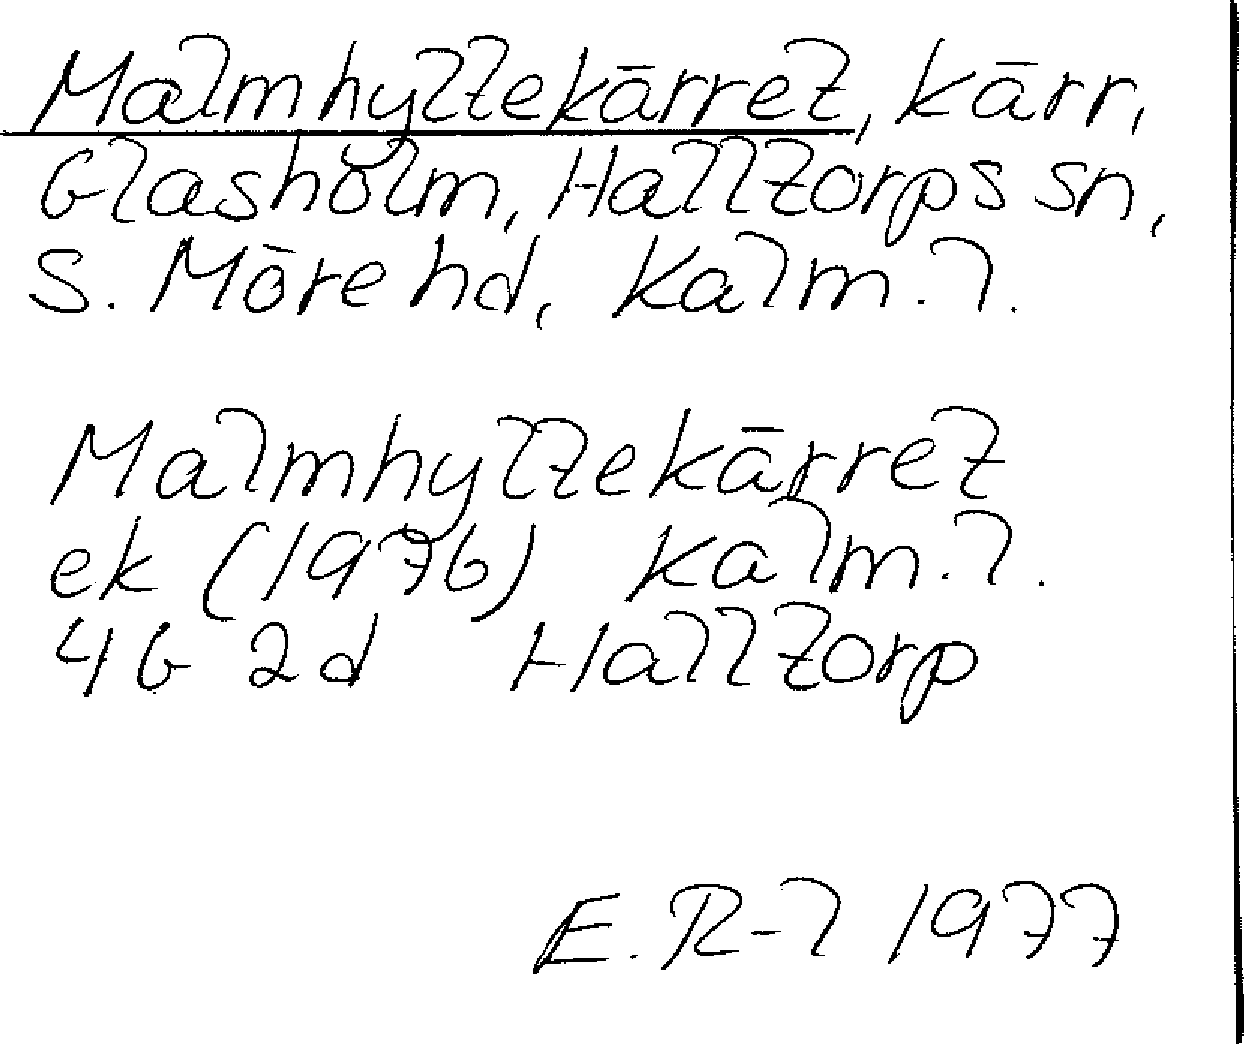 Malmhyltekärret, kärr,
Glasholm, Halltorps sn,
S. Möre hd, Kalm. l.
Malmhyltekärret
ek (1976) Kalm. l.
4G 2d Halltorp
E. R-l 1977